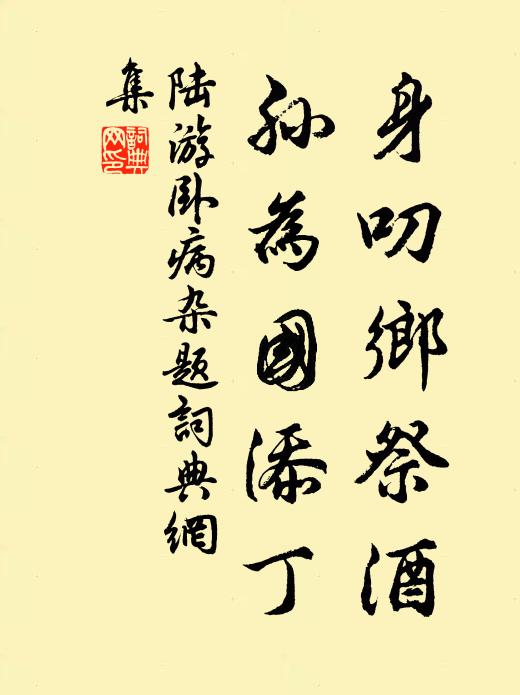 身叨鄉祭酒
孙為國添丁
陆游卧病杂題詞典網
集
詞典
网印